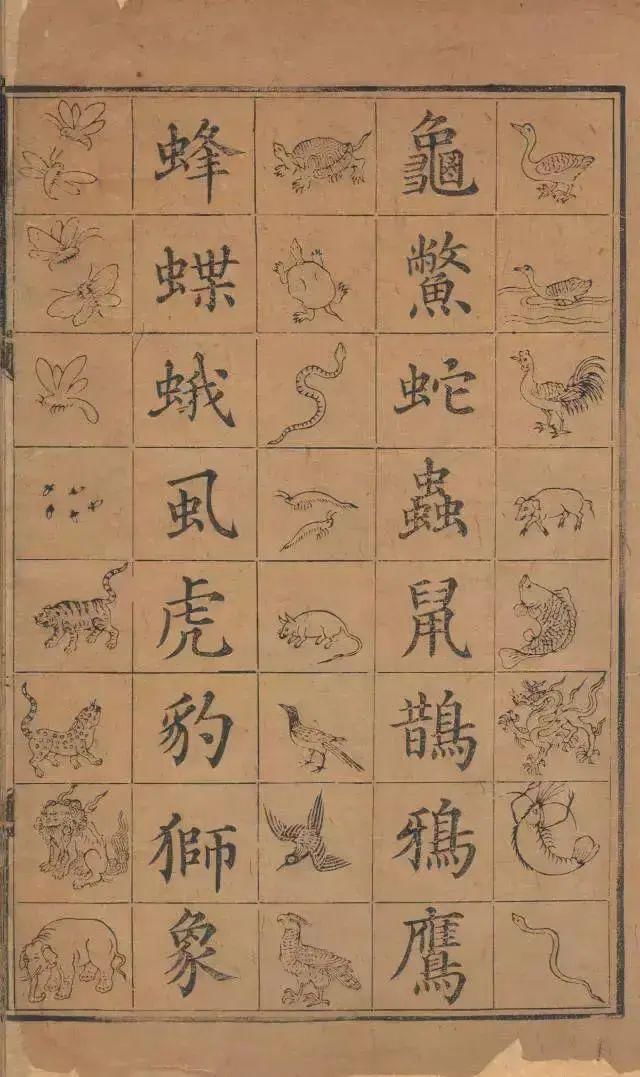 龜
鼈
蛇
蟲
鼠
鵲
鴉
鷹
蜂
蝶
蛾
虱
虎
豹
獅
象